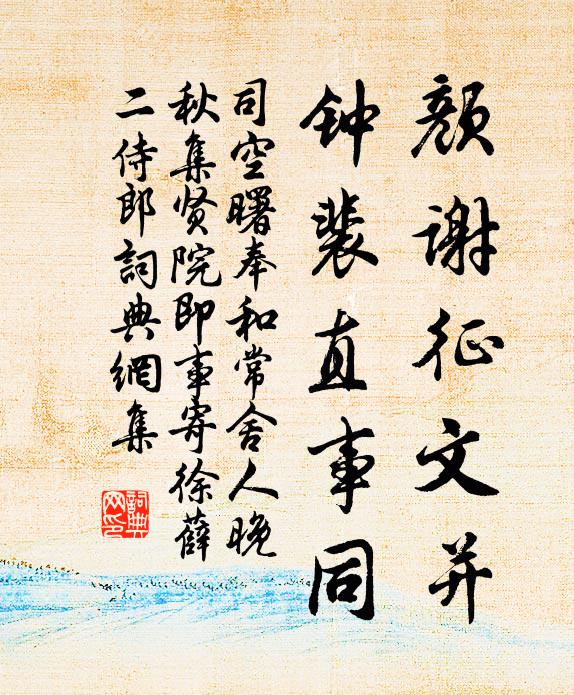 颜谢征文并
钟裴直事同
司空曙奉和常舍人晚
秋集贤院即事寄徐薛
二侍郎詞典網集
詞典
网印